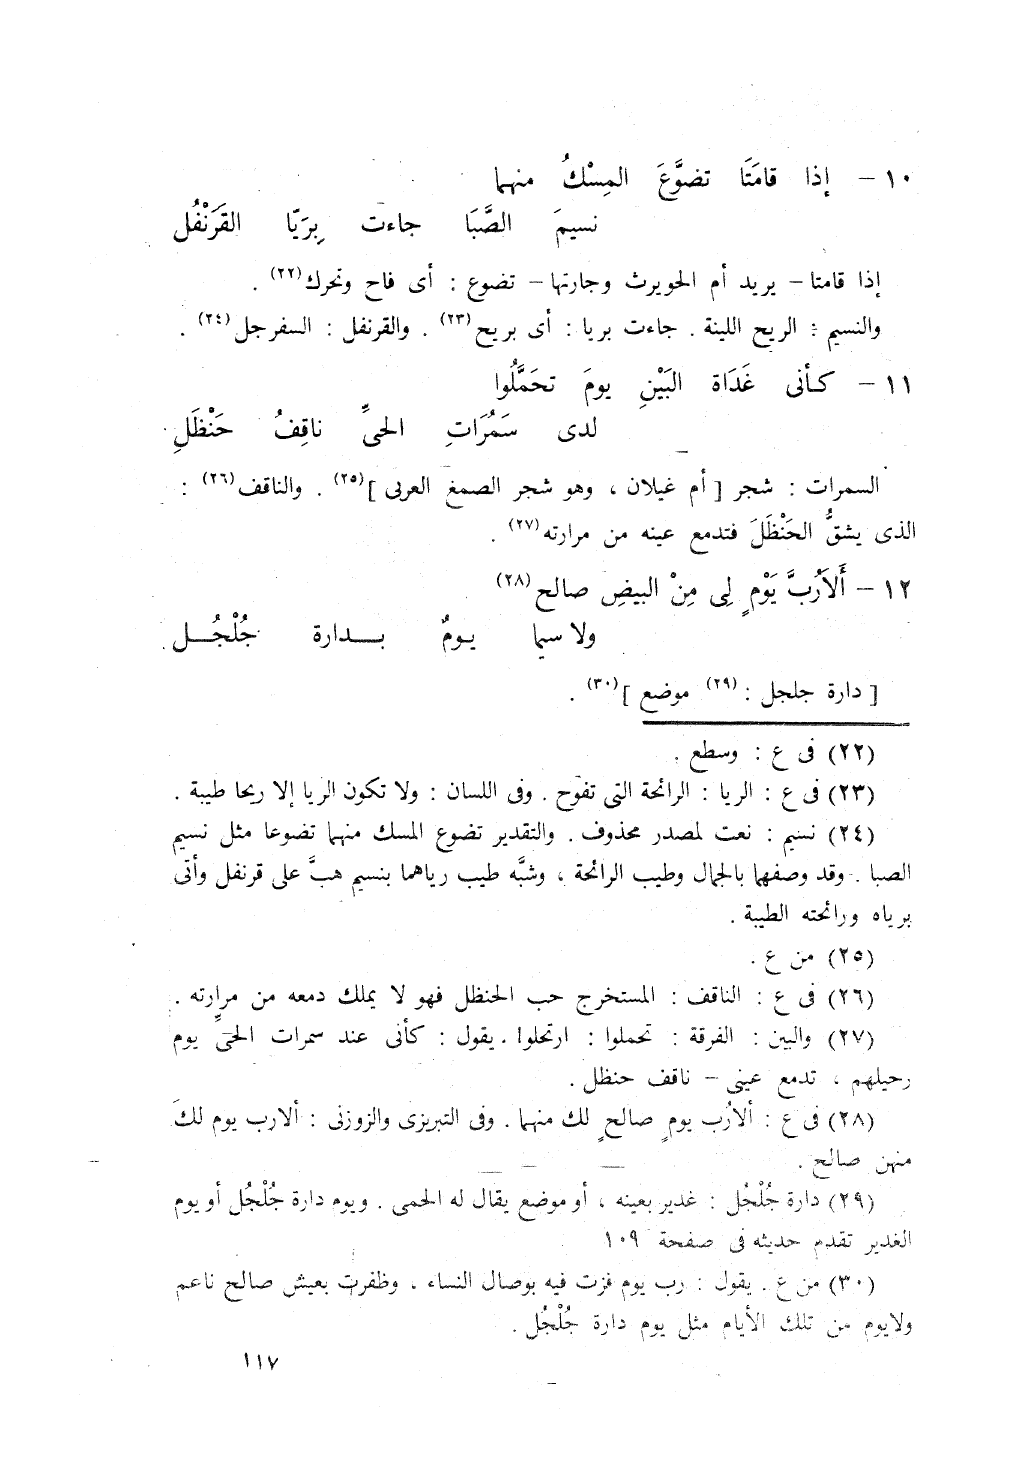 ١٠ – إذا قامَتَا تضوَّعَ المِسْكُ منهما
نسيمَ الصَّبَا جاءت بِرَيّا القَرَنْفُل
إذا قامتا – يريد أم الحويرث وجارتها – تضوع : أى فاح وتحرك(٢٢) .
والنسيم : الريح اللينة . جاءت بريا : أى بريح(٢٣) . والقرنفل : السفرجل(٢٤) .
١١ – كأنى غَدَاة البَيْنِ يومَ تحَمَّلُوا
لدى سَمُرَاتِ الحىِّ ناقِفُ حَنْظَلِ
السمرات : شجر [ أم غيلان ، وهو شجر الصمغ العربى ](٢٥) . والناقف(٢٦) :
الذى يشقُّ الحَنْظَلَ فتدمع عينه من مرارته(٢٧) .
١٢ – أَلَارُبَّ يَوْمٍ لِى مِنْ البيضِ صالح(٢٨)
ولا سيما يومٌ بـدارة جُلْجُـل .
[ دارة جلجل :(٢٩) موضع ](٣٠) .
(٢٢) فى ع : وسطع .
(٢٣) فى ع : الريا : الرائحة التى تفوح . وفى اللسان : ولا تكون الريا إلا ريحا طيبة .
(٢٤) نسيم : نعت لمصدر محذوف . والتقدير تضوع المسك منهما تضوعا مثل نسيم
الصبا . وقد وصفهما بالجمال وطيب الرائحة ، وشبَّه طيب رياهما بنسيم هبَّ على قرنفل وأتى
برياه ورائحته الطيبة .
(٢٥) من ع .
(٢٦) فى ع : الناقف : المستخرج حب الحنظل فهو لا يملك دمعه من مرارته .
(٢٧) والبين : الفرقة : تحملوا : ارتحلوا . يقول : كأنى عند سمرات الحىِّ يوم
رحيلهم ، تدمع عينى – ناقف حنظل .
(٢٨) فى ع : ألارُب يومٍ صالحٍ لك منهما . وفى التبريزى والزوزنى : ألارب يوم لكَ
منهن صالح .
(٢٩) دارة جُلْجُل : غدير بعينه ، أو موضع يقال له الحمى . ويوم دارة جُلْجُل أو يوم
الغدير تقدم حديثه فى صفحة ١٠٩
(٣٠) من ع . يقول : رب يوم فزت فيه بوصال النساء ، وظفرت بعيش صالح ناعم
ولايوم من تلك الأيام مثل يوم دارة جُلْجُل .
١١٧